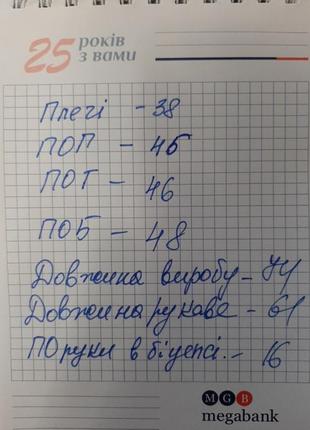 25 років
з вами
Плечі - 38
ПОП - 45
ПОТ - 46
ПОБ - 48
Довжина виробу - 74
Довжина рукаве - 61
ПО руки в біцепсі. - 16
MGB
megabank